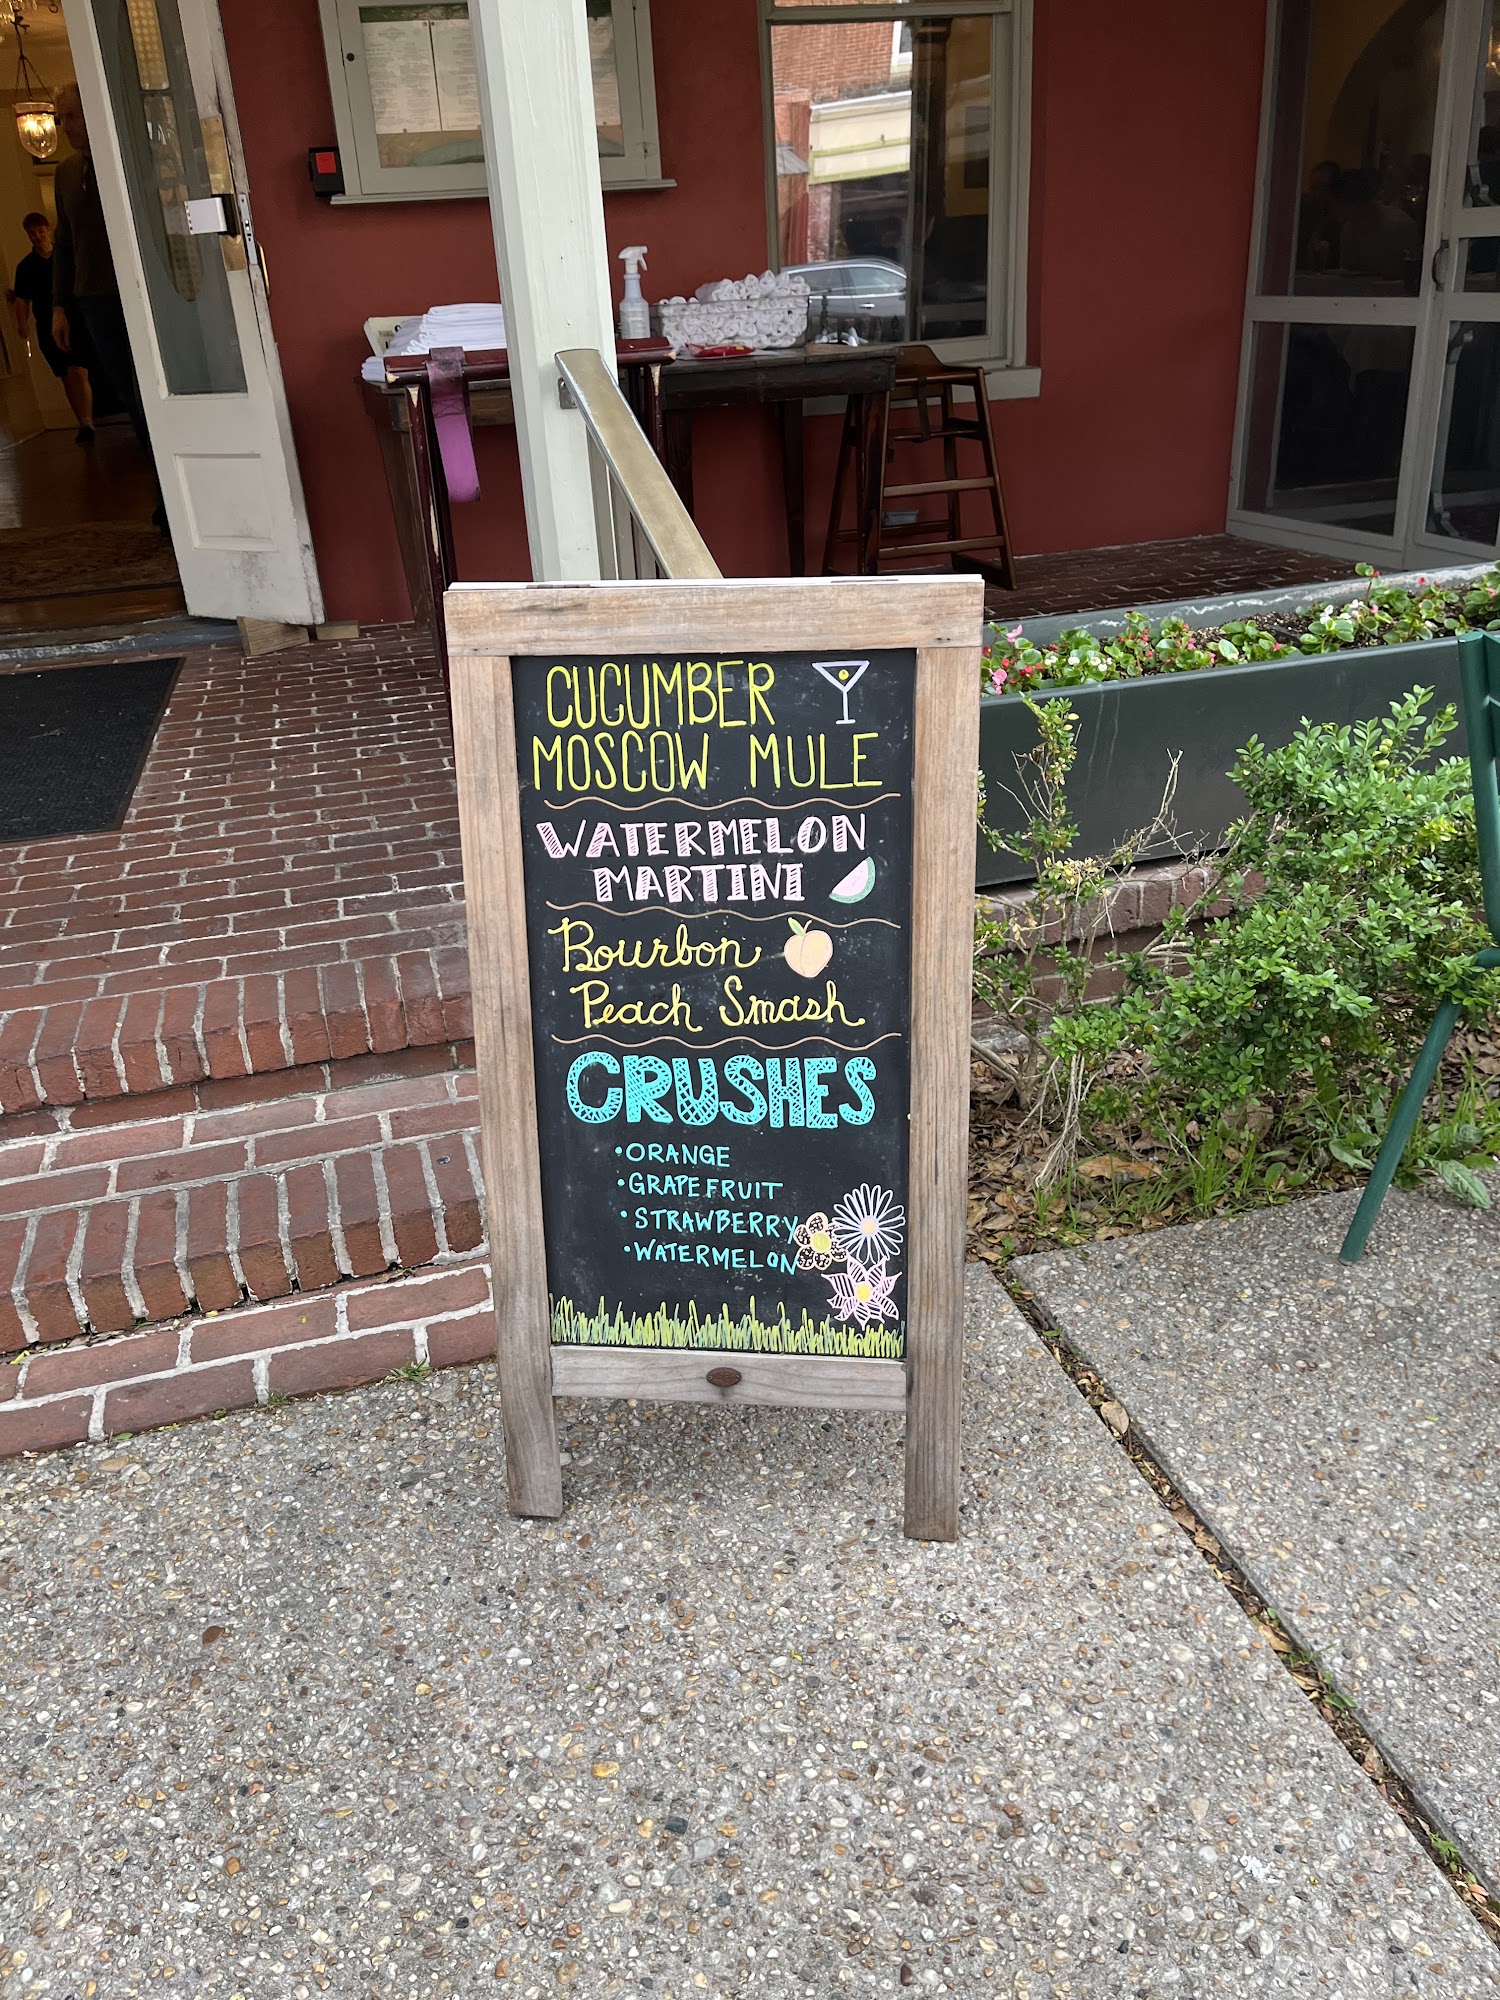 CUCUMBER
MOSCOW MULE
WATERMELON
MARTINI
Bourbon
Peach Smash
CRUSHES
•ORANGE
•GRAPEFRUIT
•STRAWBERRY
•WATERMELON